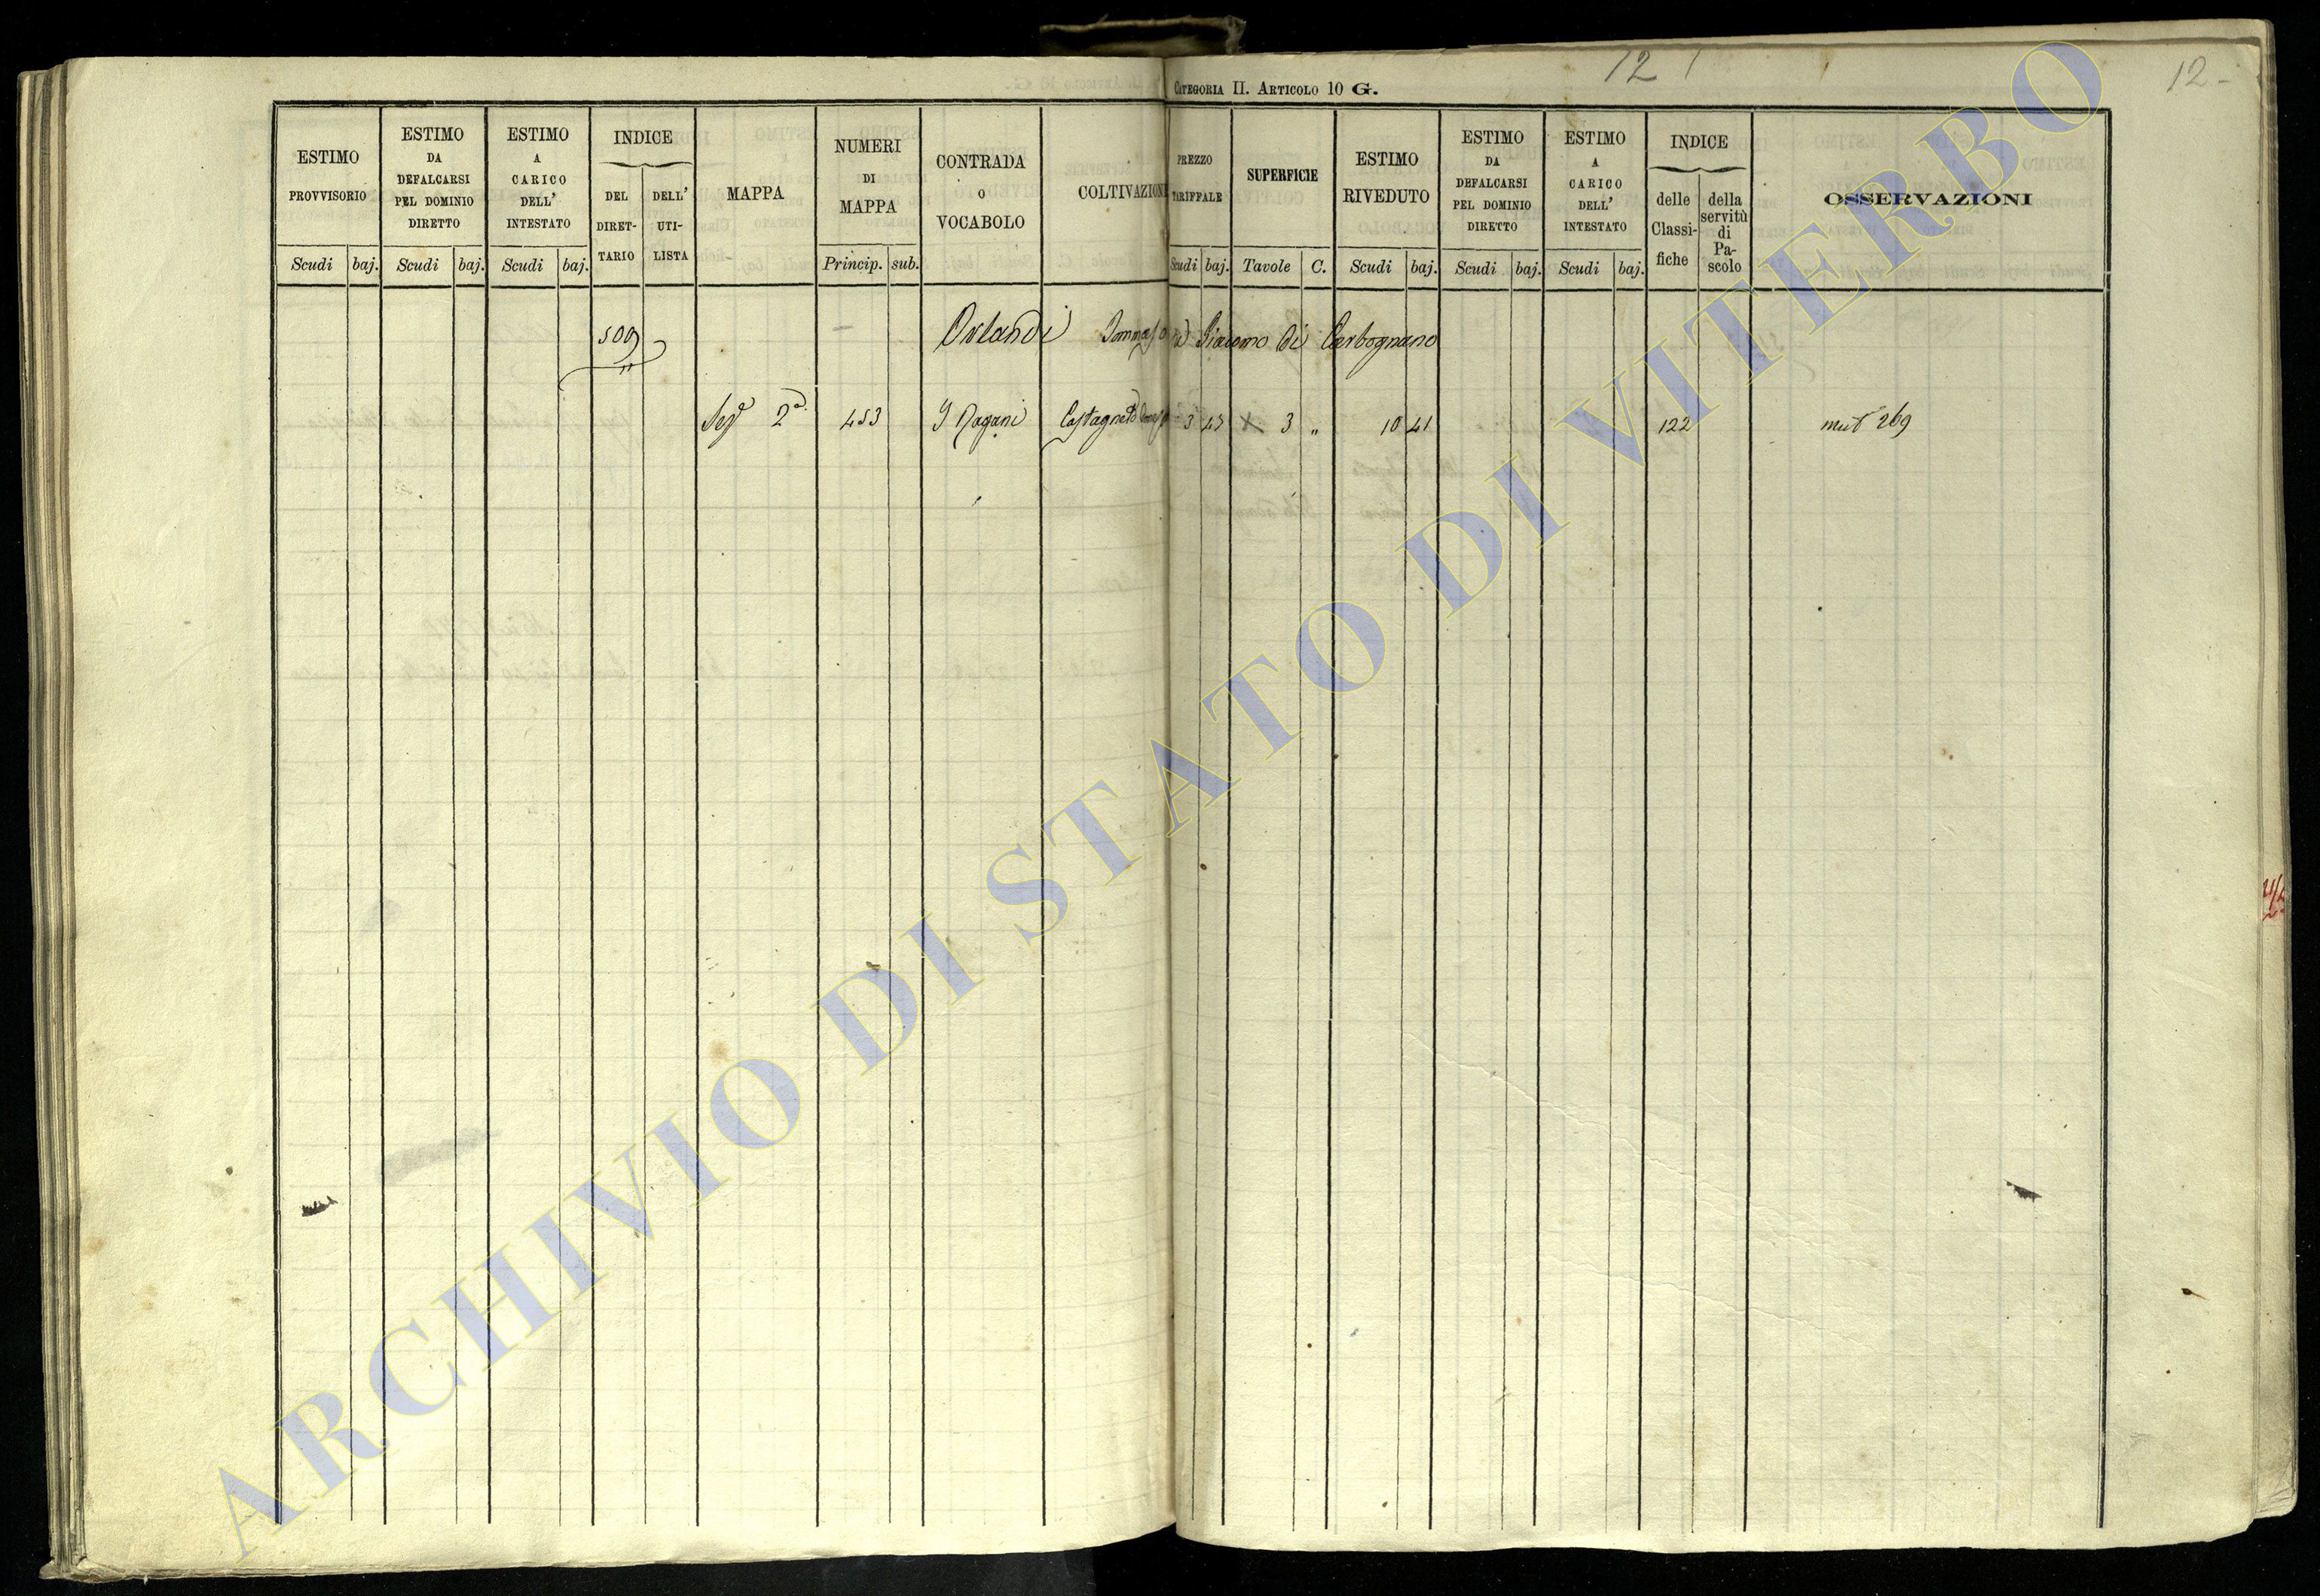 CATEGORIA II. ARTICOLO 10 G.
12
12-
ESTIMO PROVVISORIO
Scudi baj.
ESTIMO DA DEFALCARSI PEL DOMINIO DIRETTO
Scudi baj.
ESTIMO A CARICO DELL' INTESTATO
Scudi baj.
INDICE
DEL DIRET-
TARIO
DELL' UTI-
LISTA
MAPPA
NUMERI DI MAPPA
Princip. sub.
CONTRADA O VOCABOLO
COLTIVAZIONE
PREZZO TARIFFALE
Scudi baj.
SUPERFICIE
Tavole C.
ESTIMO RIVEDUTO
Scudi baj.
ESTIMO DA DEFALCARSI PEL DOMINIO DIRETTO
Scudi baj.
ESTIMO A CARICO DELL' INTESTATO
Scudi baj.
INDICE
delle Classi-
fiche
della servitù di Pa-
scolo
OSSERVAZIONI
509 Orlandi Tommaso Giacomo di Carbognano
2ª 453 Castagneto 3 47 3 " 10 41 122 mutª 269
ARCHIVIO DI STATO DI VITERBO